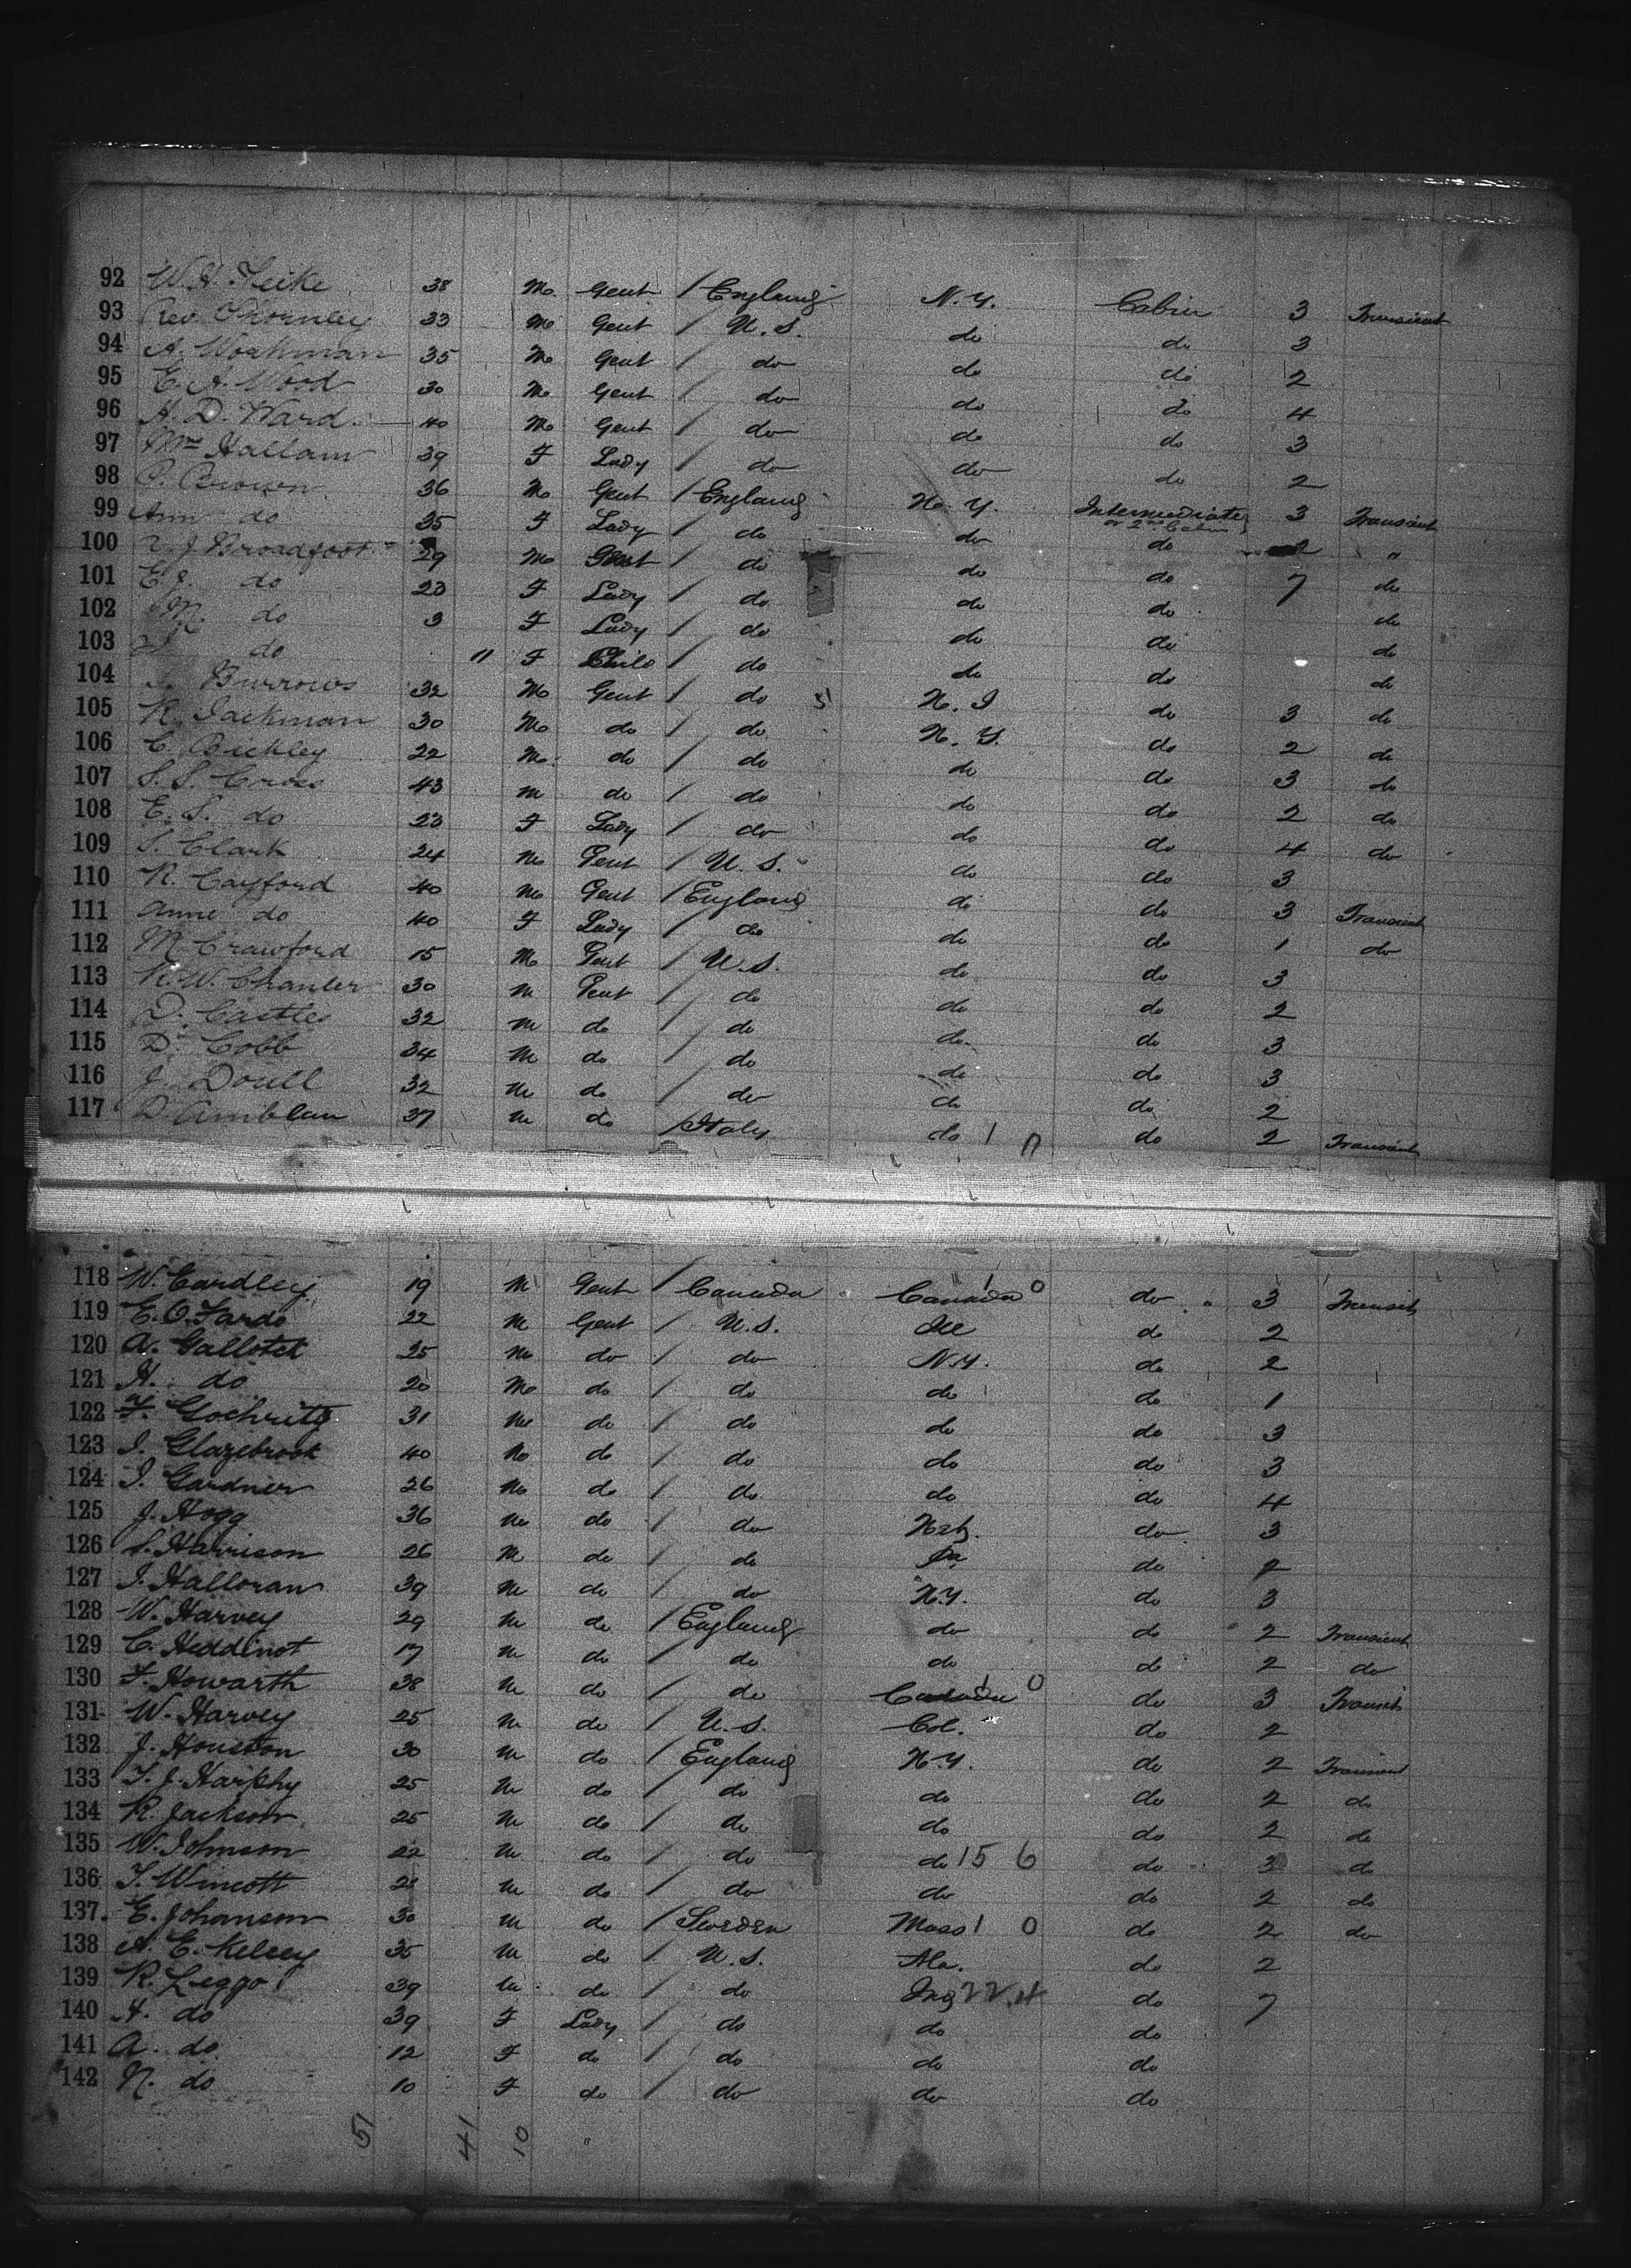 92 W. H. 38 M. Gent / England N.Y. Cabin 3 Transient
93 Rev. Thornley 33 M Gent / U.S. do do 3
94 A. Workman 35 M Gent / do do do 2
95 E. A. Wood 30 M Gent / do do do 4
96 A. D. Ward 40 M Gent / do do do 3
97 Mrs Hallam 39 F Lady / do do do 2
98 P. Brown 36 M Gent / England N.Y. Intermediate or 2nd Cabin 3 Transient
99 Ann do 35 F Lady / do do do 2 "
100 J. Broadfoot 29 M Gent / do do do 7 do
101 E. J. do 23 F Lady / do do do do
102 M. do 3 F Lady / do do do do
103 do 11 F Child / do do do do
104 Burrows 32 M Gent / do N.J do 3 do
105 R. Jackman 30 M do / do N.Y. do 2 do
106 C. Bickley 22 M do / do do do 3 do
107 S. S. Cross 43 M do / do do do 2 do
108 E. S. do 23 F Lady / do do do 4 do
109 S. Clark 24 M Gent / U.S. do do 3
110 R. Cayford 40 M Gent / England do do 3 Transient
111 Anne do 40 F Lady / do do do 1 do
112 M. Crawford 15 M Gent / U.S. do do 3
113 R. W. Chanler 30 M Gent / do do do 2
114 D. Castles 32 M do / do do do 3
115 D. Cobb 34 M do / do do do 3
116 J. Doull 32 M do / do do do 2
117 D. Amblau 37 M do / Italy do 1 0 do 2 Transient
118 W. Eardley 19 M Gent / Canada Canada 1 0 do 3 Transit
119 E. O. Fards 22 M Gent / U.S. Ill do 2
120 A. Gallotek 25 M do / do N.Y. do 2
121 H. do 20 M do / do do do 1
122 F. Gochritz 31 M do / do do do 3
123 J. Glazebrook 40 M do / do do do 3
124 J. Gardner 26 M do / do do do 4
125 J. Hogg 36 M do / do Neb. do 3
126 S. Harrison 26 M do / do Pa do 2
127 J. Halloran 39 M do / do N.Y. do 3
128 W. Harvey 29 M do / England do do 2 Transient
129 C. Heddinot 17 M do / do do do 2 do
130 F. Howarth 38 M do / do Canada 1 0 do 3 Transit
131 W. Harvey 25 M do / U.S. Col. do 2
132 J. Houston 30 M do / England N.Y. do 2 Transient
133 T. J. Harphy 25 M do / do do do 2 do
134 R. Jackson 25 M do / do do do 2 do
135 W. Johnson 22 M do / do do 15 6 do 3 do
136 T. Wincott 28 M do / do do do 2 do
137 E. Johanson 30 M do / Sweden Mass 1 0 do 2 do
138 A. E. Kelsey 35 M do / U.S. Ala. do 2
139 R. Leggo 39 M do / do 22.4 do 7
140 A. do 39 F Lady / do do do
141 A. do 12 F do / do do do
142 N. do 10 F do / do do do
51 41 10